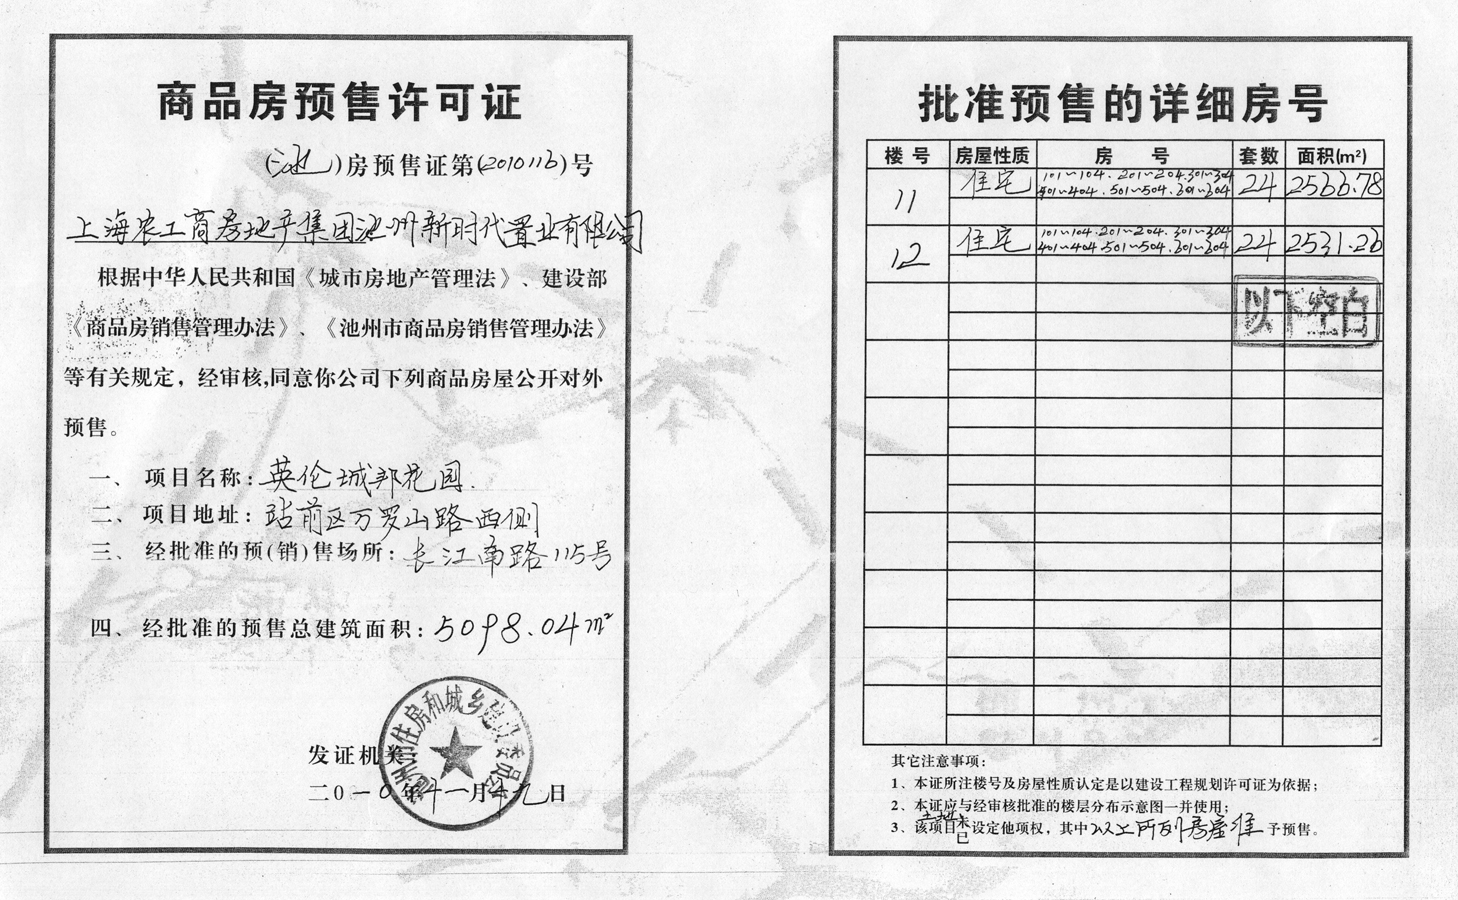 商品房预售许可证
(池)房预售证第(2010116)号
上海农工商房地产集团池州新时代置业有限公司
根据中华人民共和国《城市房地产管理法》、建设部
《商品房销售管理办法》、《池州市商品房销售管理办法》
等有关规定，经审核,同意你公司下列商品房屋公开对外
预售。
一、项目名称:英伦城邦花园.
二、项目地址:站前区万罗山路西侧
三、经批准的预(销)售场所:长江南路115号
四、经批准的预售总建筑面积:5098.04m²
池州市住房和城乡建设委员会
发证机关:
二0一0年十一月十九日
批准预售的详细房号
楼号 房屋性质 房号 套数 面积(m²)
11 住宅 101~104.201~204.301~304 24 2566.78
401~404.501~504.301~304
12 住宅 101~104.201~204.301~304 24 2531.26
401~404.501~504.301~304
以下空白
其它注意事项:
1、本证所注楼号及房屋性质认定是以建设工程规划许可证为依据;
2、本证应与经审核批准的楼层分布示意图一并使用;
土地
3、该项目未已设定他项权，其中以上所列房屋准予预售。